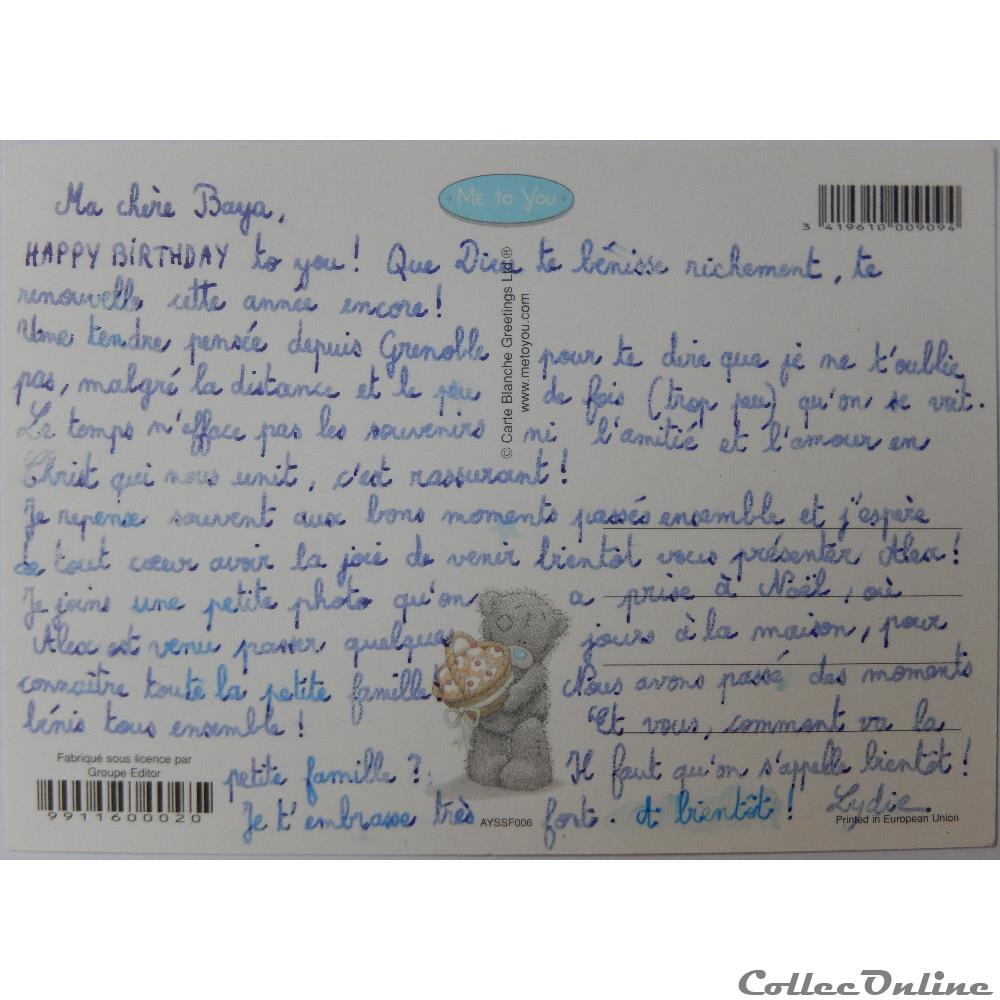 Ma chère Baya,
ME TO YOU
3 419610 009094
HAPPY BIRTHDAY to you ! Que Dieu te bénisse richement, te
renouvelle cette année encore !
Une tendre pensée depuis Grenoble pour te dire que je ne t'oublie
pas, malgré la distance et le peu de fois (trop peu) qu'on se voit.
Le temps n'efface pas les souvenirs ni l'amitié et l'amour en
Christ qui nous unit, c'est rassurant !
© Carte Blanche Greetings Ltd.®
www.metoyou.com
Je repense souvent aux bons moments passés ensemble et j'espère
de tout cœur avoir la joie de venir bientôt vous présenter Alex !
Je joins une petite photo qu'on a prise à Noël, où
Alex est venu passer quelques jours à la maison, pour
connaître toute la petite famille. Nous avons passé des moments
bénis tous ensemble ! Et vous, comment va la
petite famille ? Il faut qu'on s'appelle bientôt !
Je t'embrasse très fort. A bientôt ! Lydie
Fabriqué sous licence par
Groupe Editor
9911600020
AYSSF006
Printed in European Union
CollecOnline